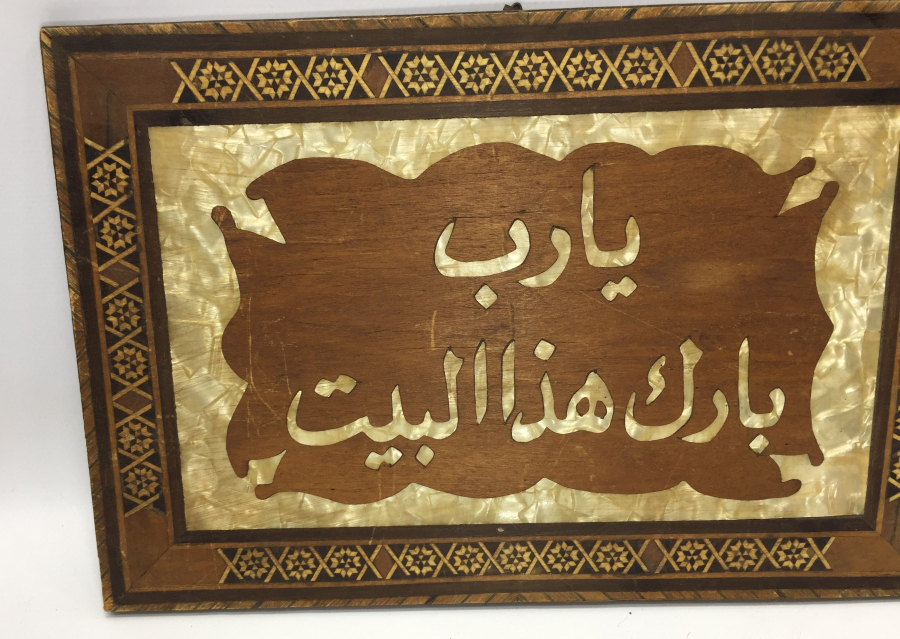 يارب
بارك هذا البيت